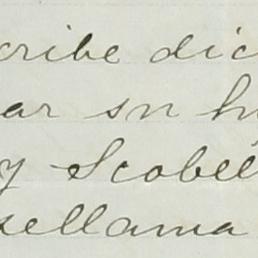 cribe dic
ar sn h
y Scobell
sellama